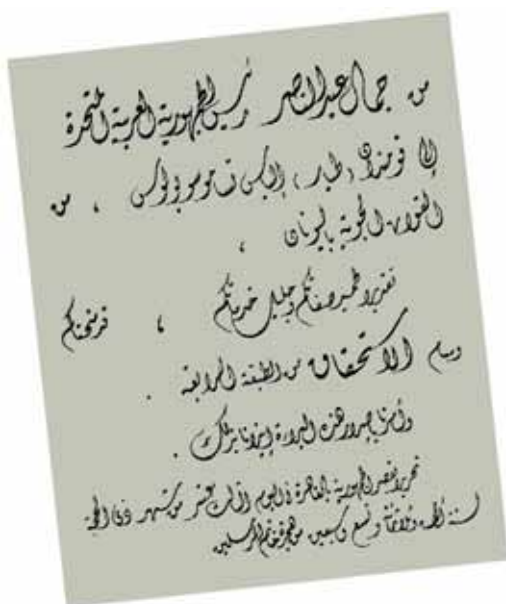 من جمال عبد الناصر رئيس الجمهورية العربية المتحدة
إلى قومندان (طيار) إليكس تساموسوبولوس ، من
القوات الجوية باليونان ،
تقديراً لحميد صفاتكم وجليل خدماتكم ، قد منحناكم
وسام الاستحقاق من الطبقة الرابعة .
وأمرنا بإصدار هذه البراءة إيذانا بذلك .
تحريراً بقصر الجمهورية بالقاهرة في اليوم الثالث عشر من شهر ذي الحجة
لسنة ألف وثلاثمائة وتسع وسبعين من هجرة خاتم المرسلين